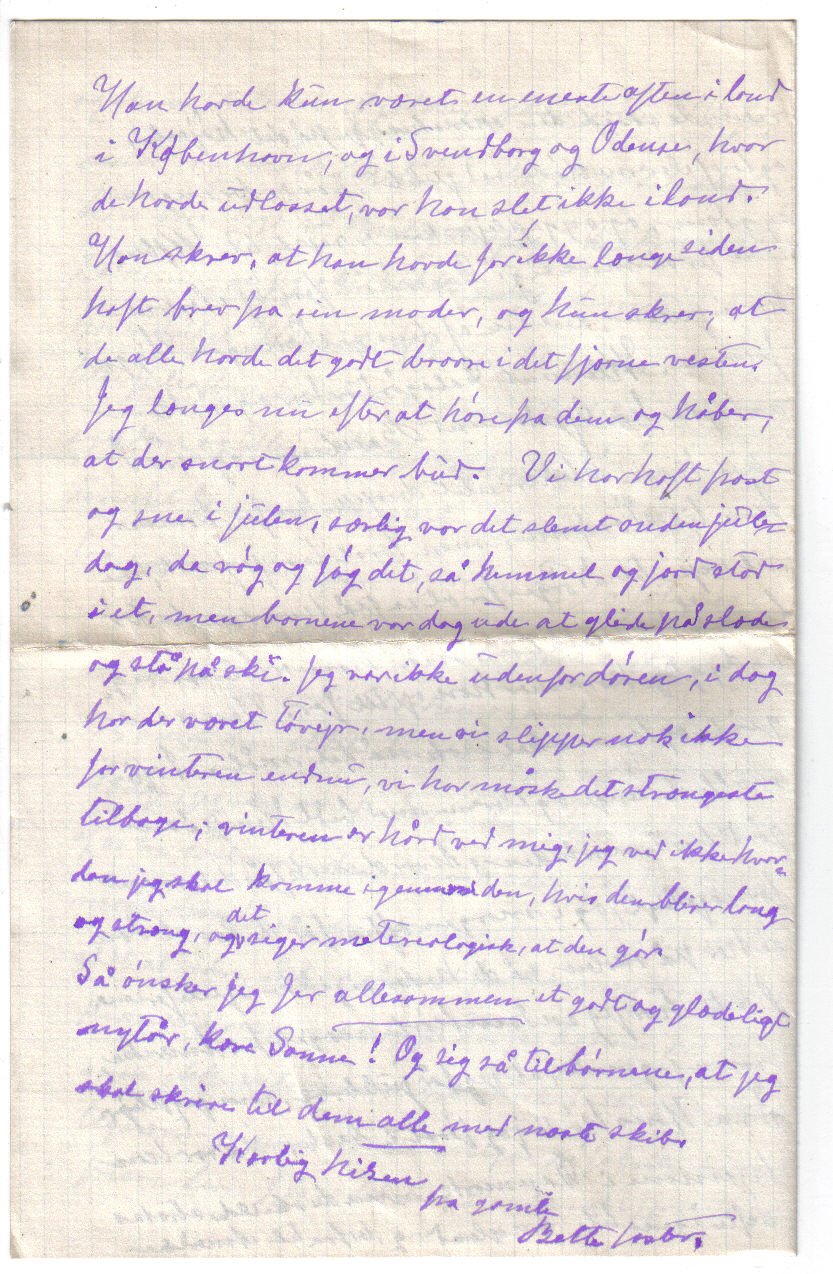 Han havde kun været en eneste aften i land
i København, og i Svendborg og Odense, hvor
de havde udlosset, var han slet ikke i land.
Han skrev, at han havde for ikke længe siden
haft brev fra sin moder, og hun skrev, at
de alle havde det godt derovre i det fjærne vesten.
Jeg længes nu efter at höre fra dem og håber,
at der snart kommer bud. Vi har haft frost
og sne i julen, særlig var det slemt anden jule-
dag, da róg og fóg det, så himmel og jord stod
i et, men børnene var dog ude at glide på slæde
og stå på ski. Jeg var ikke udenfor dóren, i dag
har der været tóvejr, men vi slipper nok ikke
for vinteren endnu, vi har måske det strængeste
tilbage; vinteren er hård ved mig, jeg ved ikke hvor-
dan jeg skal komme igennem den, hvis den bliver lang
og stræng, og det siger metereologisk, at den gór.
Så ónsker jeg Jer allesammen et godt og glædeligt
nytår, kære Sanne! Og sig så til börnene, at jeg
skal skrive til dem alle med næste skib.
Kærlig hilsen
fra gamle
Bette faster.